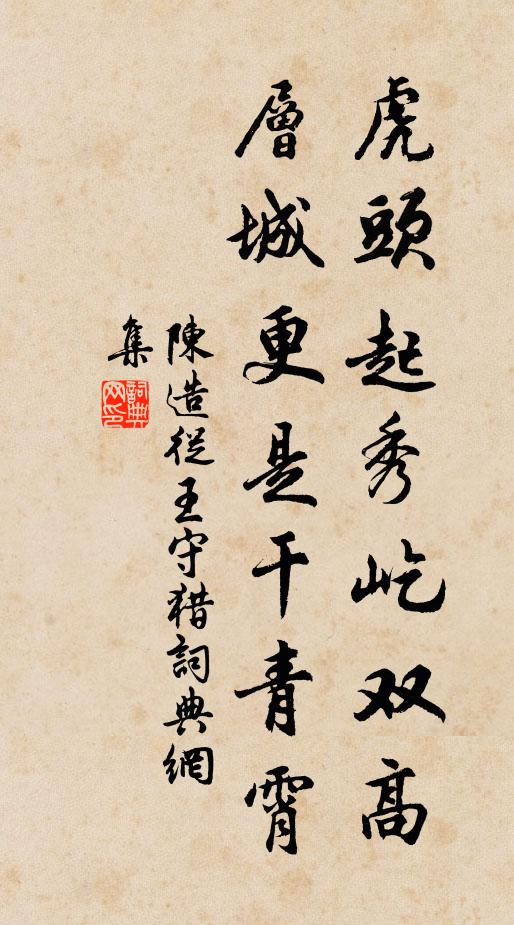 虎頭起秀屹双高
層城更是干青霄
陳造從王守猎詞典網
集
詞典网印